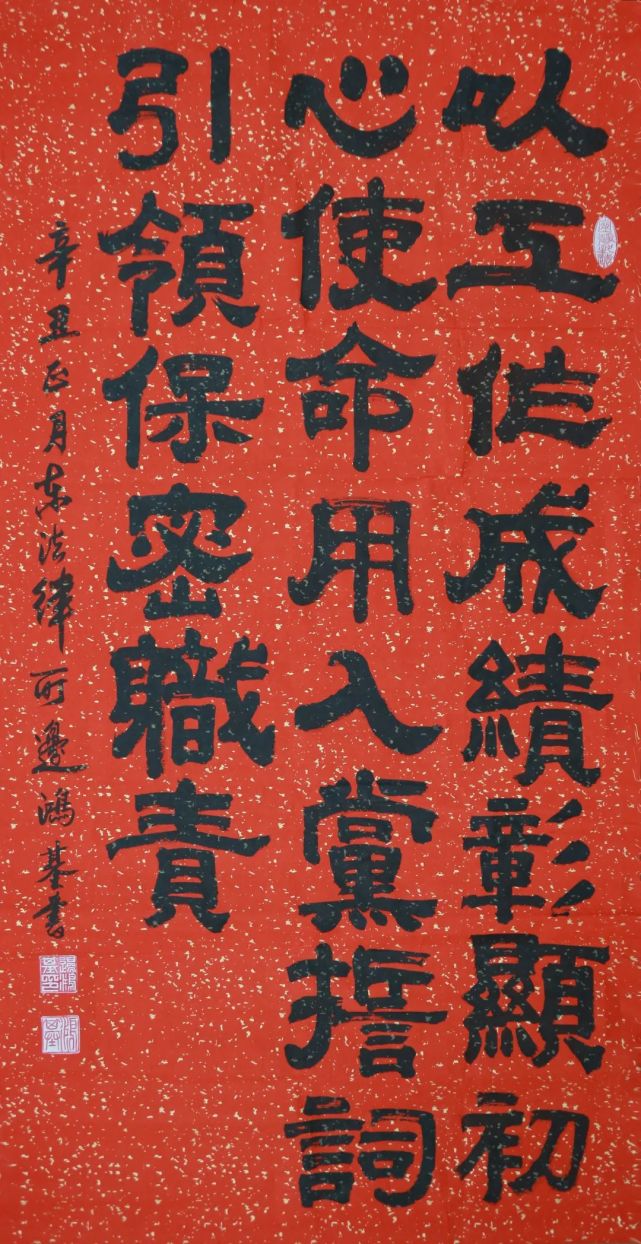 以工作成績彰顯初
心使命用入黨誓詞
引領保密職責
辛丑正月東法律所邊鴻基書